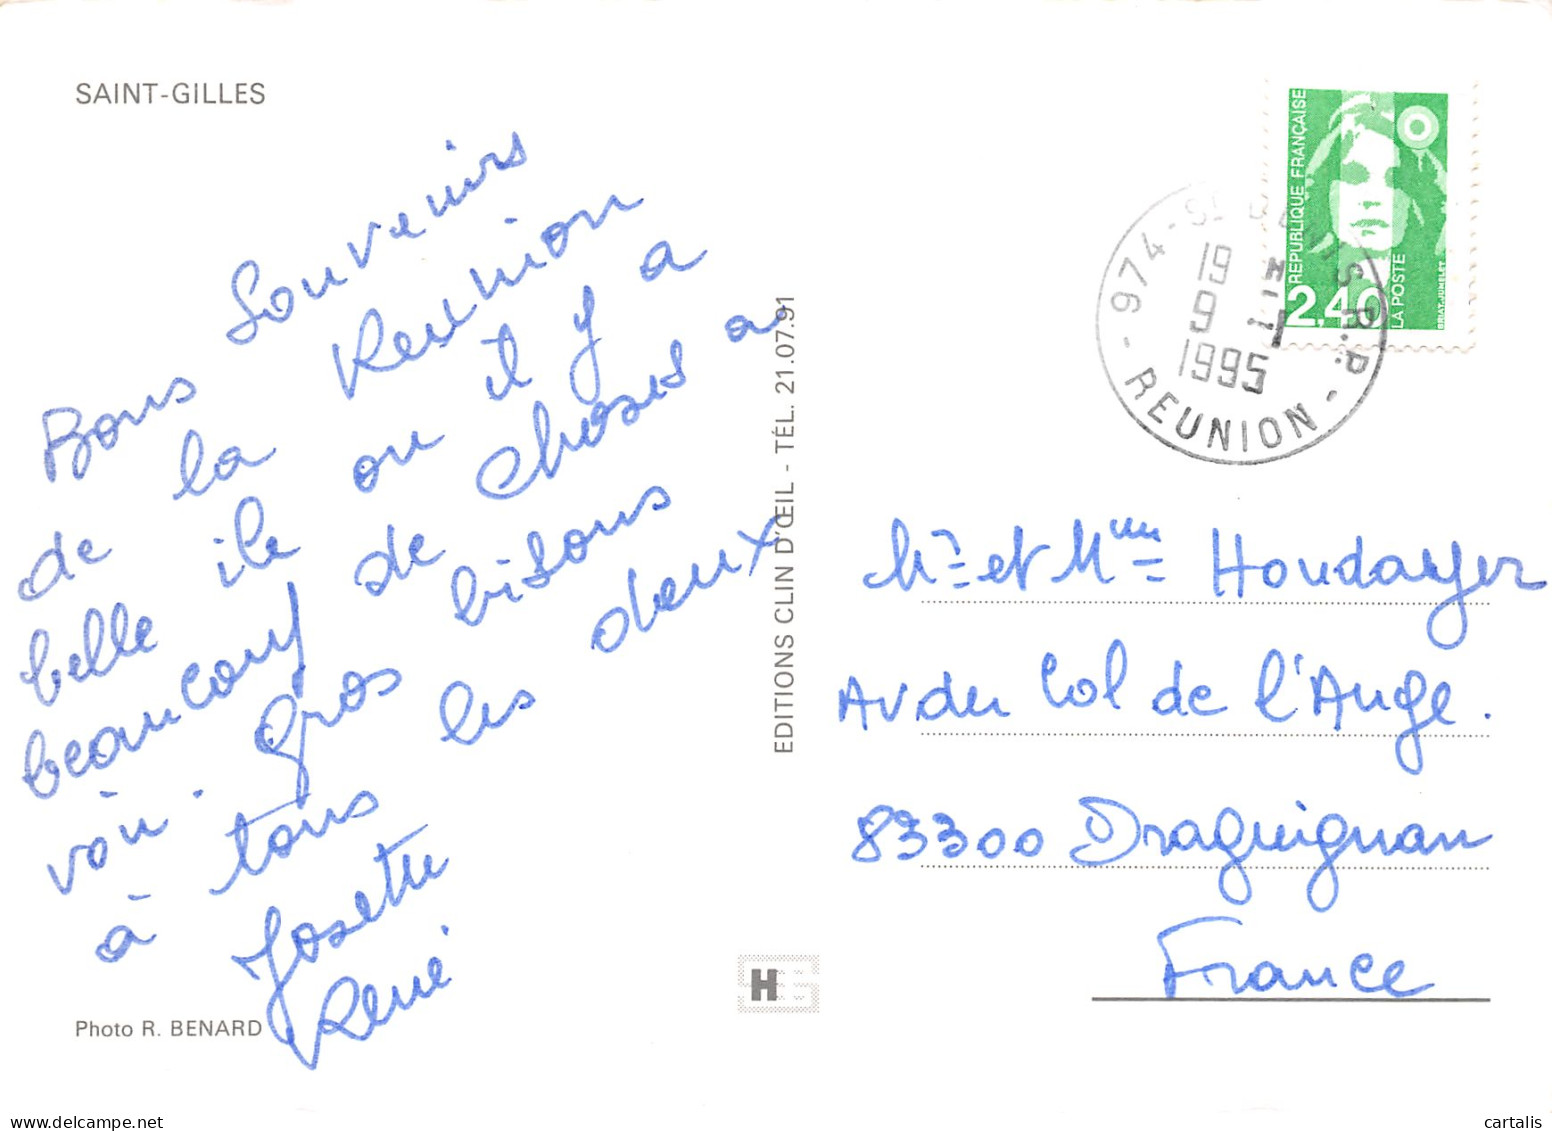 SAINT-GILLES
Bons Souvenirs
de la Reunion
belle ile ou il y a
beaucoup de choses a
voir. Gros bisous
à tous les deux
Josette
René
Photo R. BENARD
EDITIONS CLIN D'ŒIL - TÉL. 21.07.91
H
REPUBLIQUE FRANÇAISE
2,40
LA POSTE
974 - ST DENIS R.P.
19
9
1995
- REUNION -
Mr et Mme Houdayer
Av du Col de l'Ange.
83300 Draguignan
France
delcampe.net
cartalis